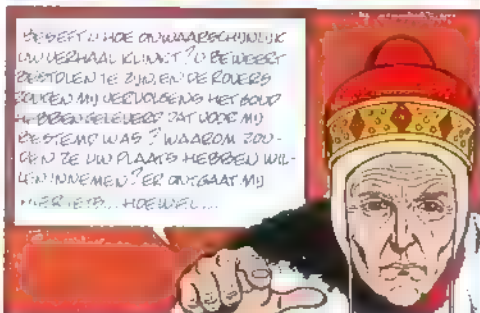 BESEFT U HOE ONWAARSCHIJNLIJK
UW VERHAAL KLINKT? U BEWEERT
BESTOLEN TE ZIJN, EN DE ROVERS
ZOUDEN MIJ VERVOLGENS HET GOUD
HEBBEN GELEVERD DAT VOOR MIJ
BESTEMD WAS? WAAROM ZOU-
DEN ZE UW PLAATS HEBBEN WIL-
LEN INNEMEN? ER ONTGAAT MIJ
HIER IETS... HOEWEL...